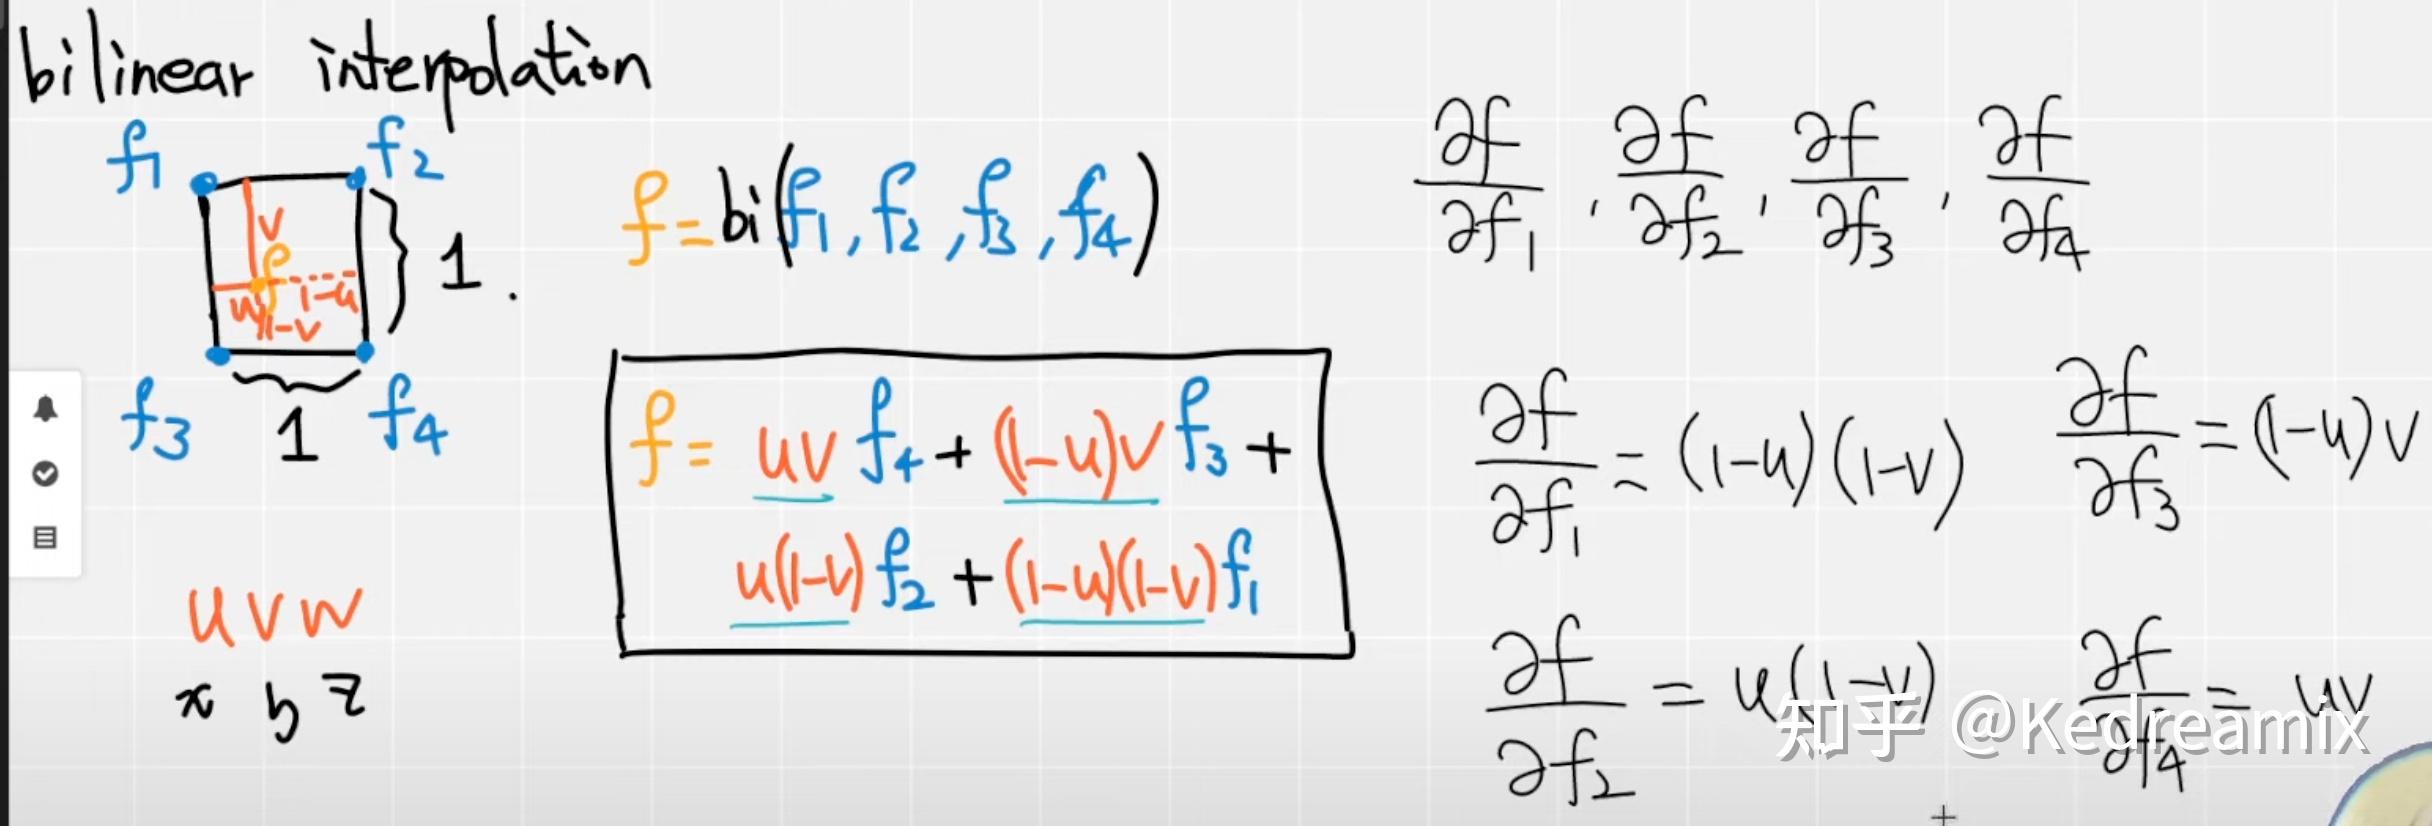 bilinear interpolation
f1 f2
v
f
u 1-u
1-v
1.
f3 1 f4
u v w
x y z
f = bi(f1, f2, f3, f4)
f = uv f4 + (1-u)v f3 +
u(1-v) f2 + (1-u)(1-v) f1
∂f/∂f1, ∂f/∂f2, ∂f/∂f3, ∂f/∂f4
∂f/∂f1 = (1-u)(1-v) ∂f/∂f3 = (1-u)v
∂f/∂f2 = u(1-v) ∂f/∂f4 = uv
知乎 @Kedreamix